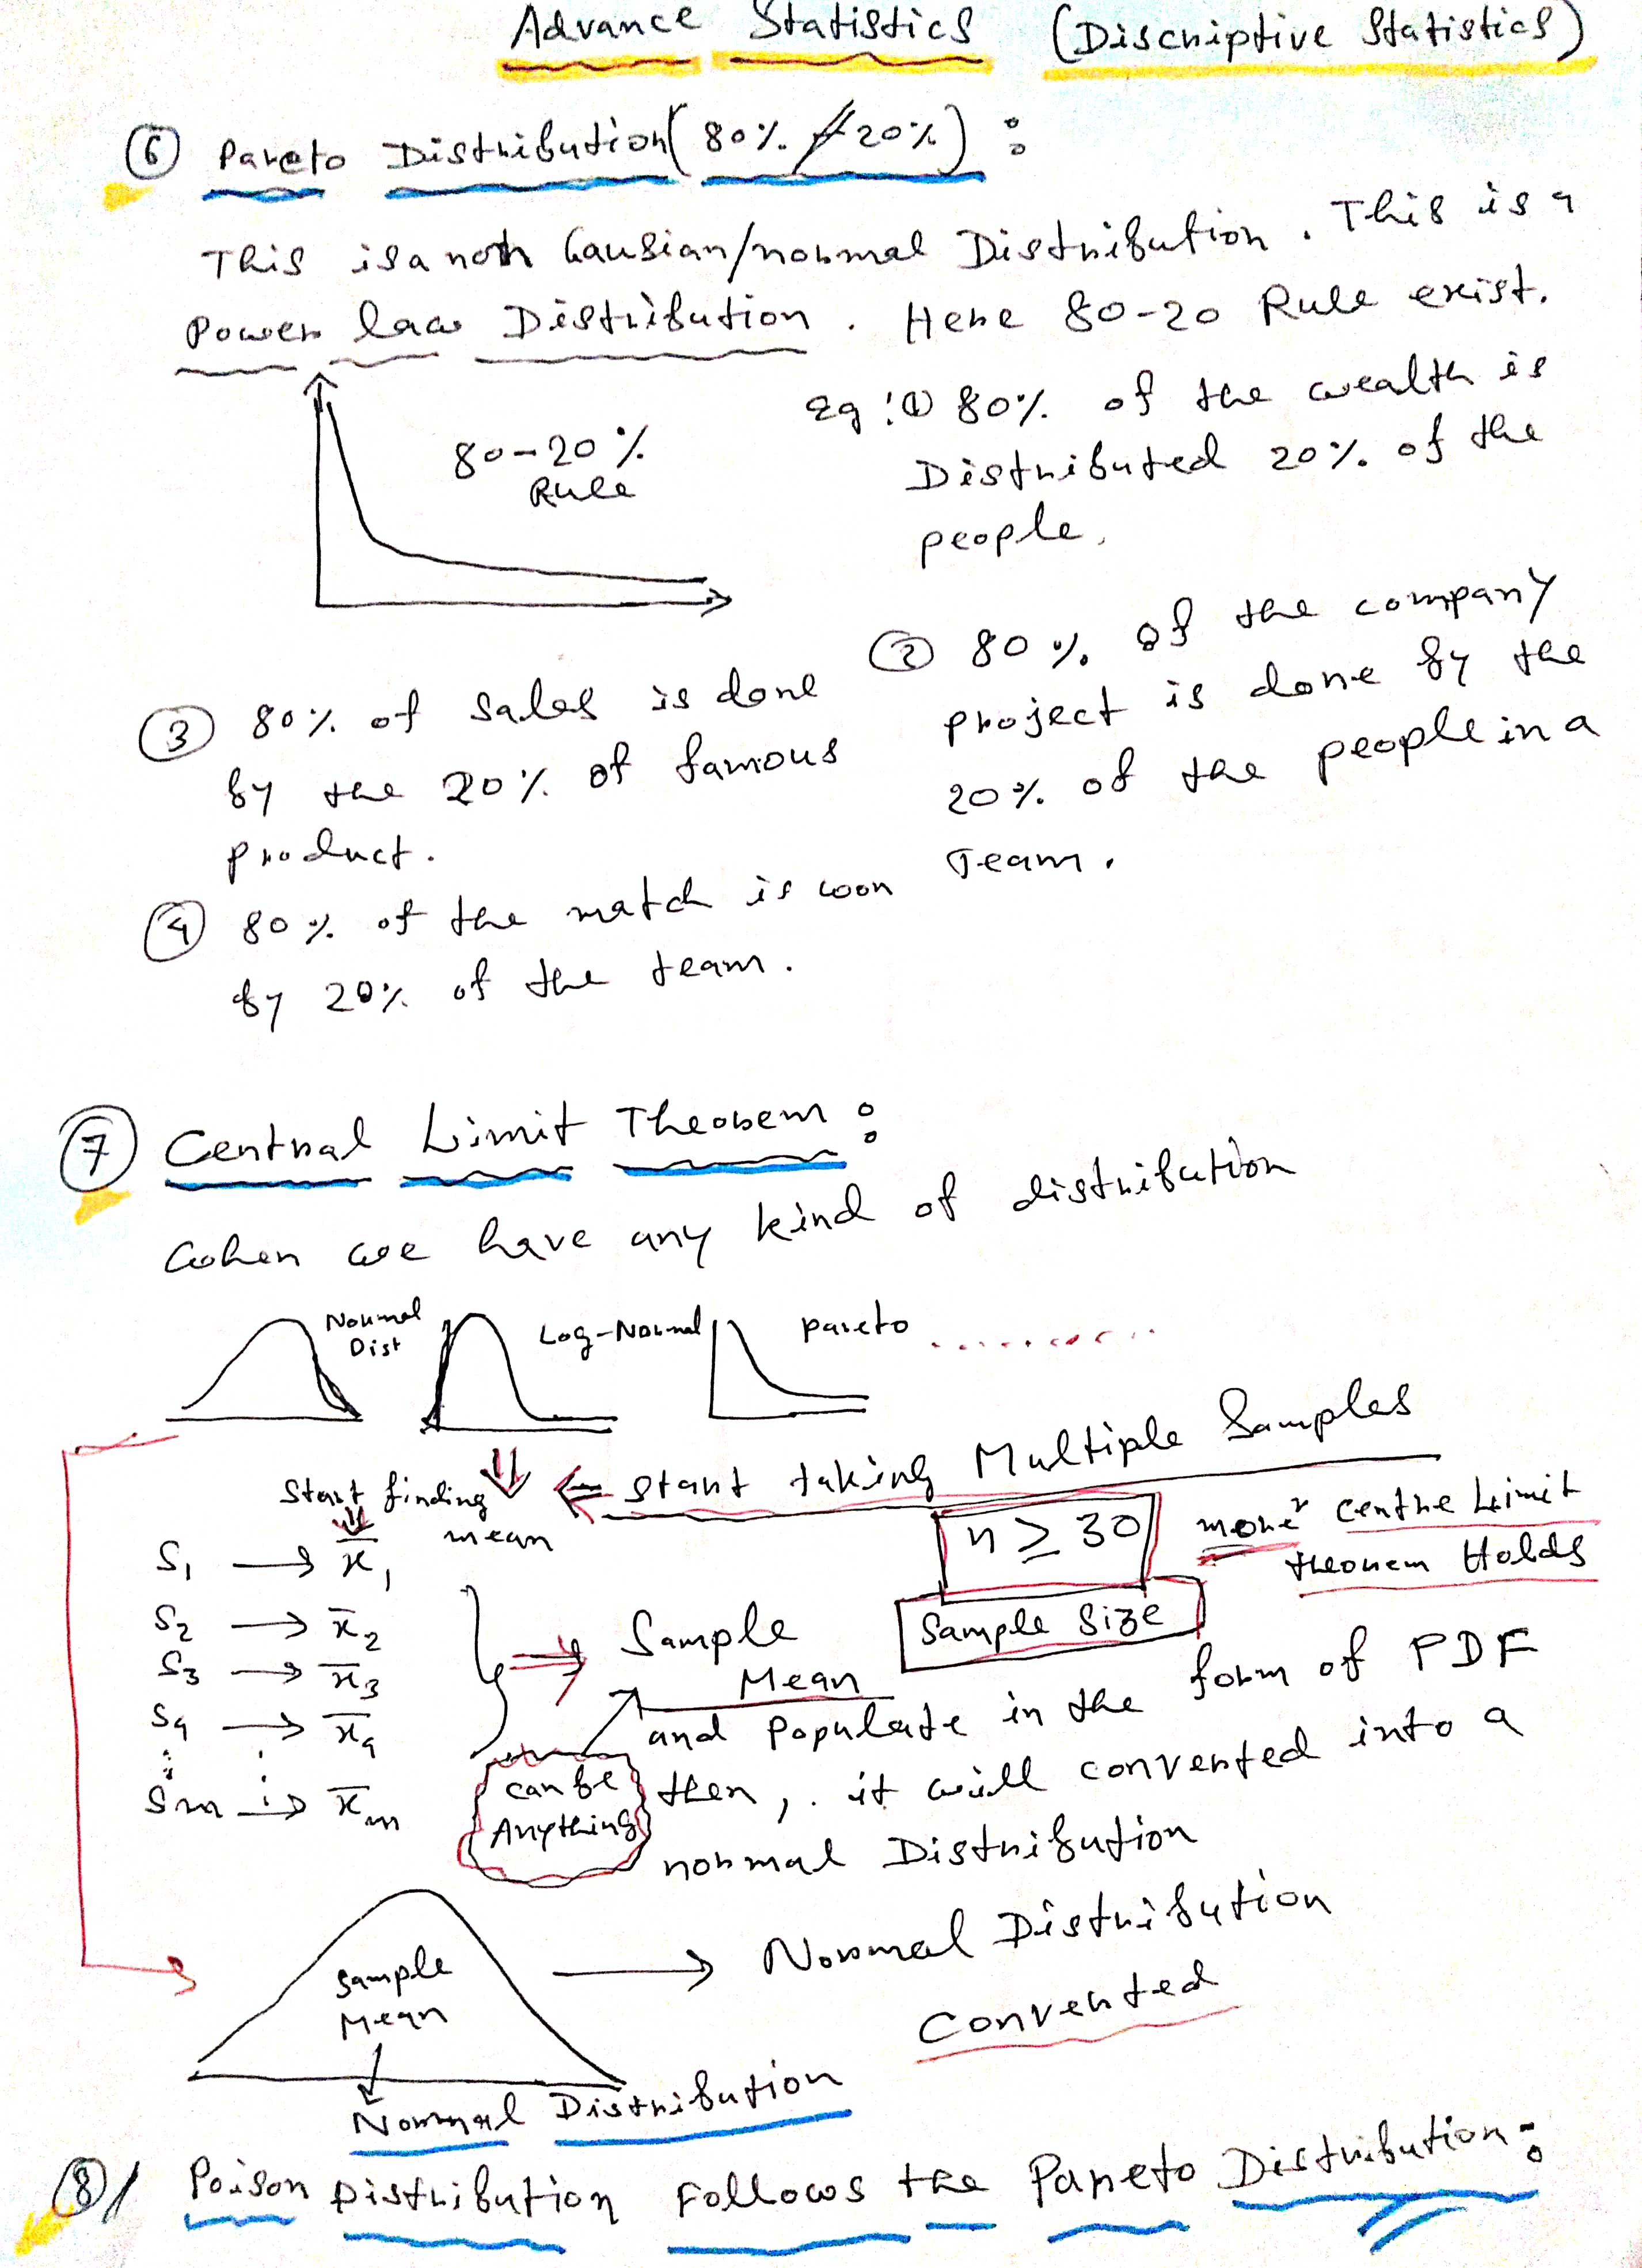 Advance Statistics (Discriptive Statistics)
6 Pareto Distribution (80% 20%) :
This is a non Gausian/normal Distribution. This is a
Power law Distribution. Here 80-20 Rule exist.
80-20%
Rule
Eg: 1 80% of the wealth is
Distributed 20% of the
people.
2 80% of the company
project is done by the
20% of the people in a
Team.
3 80% of sales is done
by the 20% of famous
product.
4 80% of the match is won
by 20% of the team.
7 Central Limit Theorem :
When we have any kind of distribution
Normal
Dist
Log-Normal
Pareto ..........
Start taking Multiple Samples
Start finding
mean
n ≥ 30
Sample Size
more centre Limit
theorem Holds
S1 → x̄1
S2 → x̄2
S3 → x̄3
S4 → x̄4
Sm → x̄m
Sample
Mean
can be
Anything
and Populate in the form of PDF
then, it will converted into a
normal Distribution
Sample
Mean
→ Normal Distribution
Converted
Normal Distribution
8 Poison Distribution Follows the Pareto Distribution: